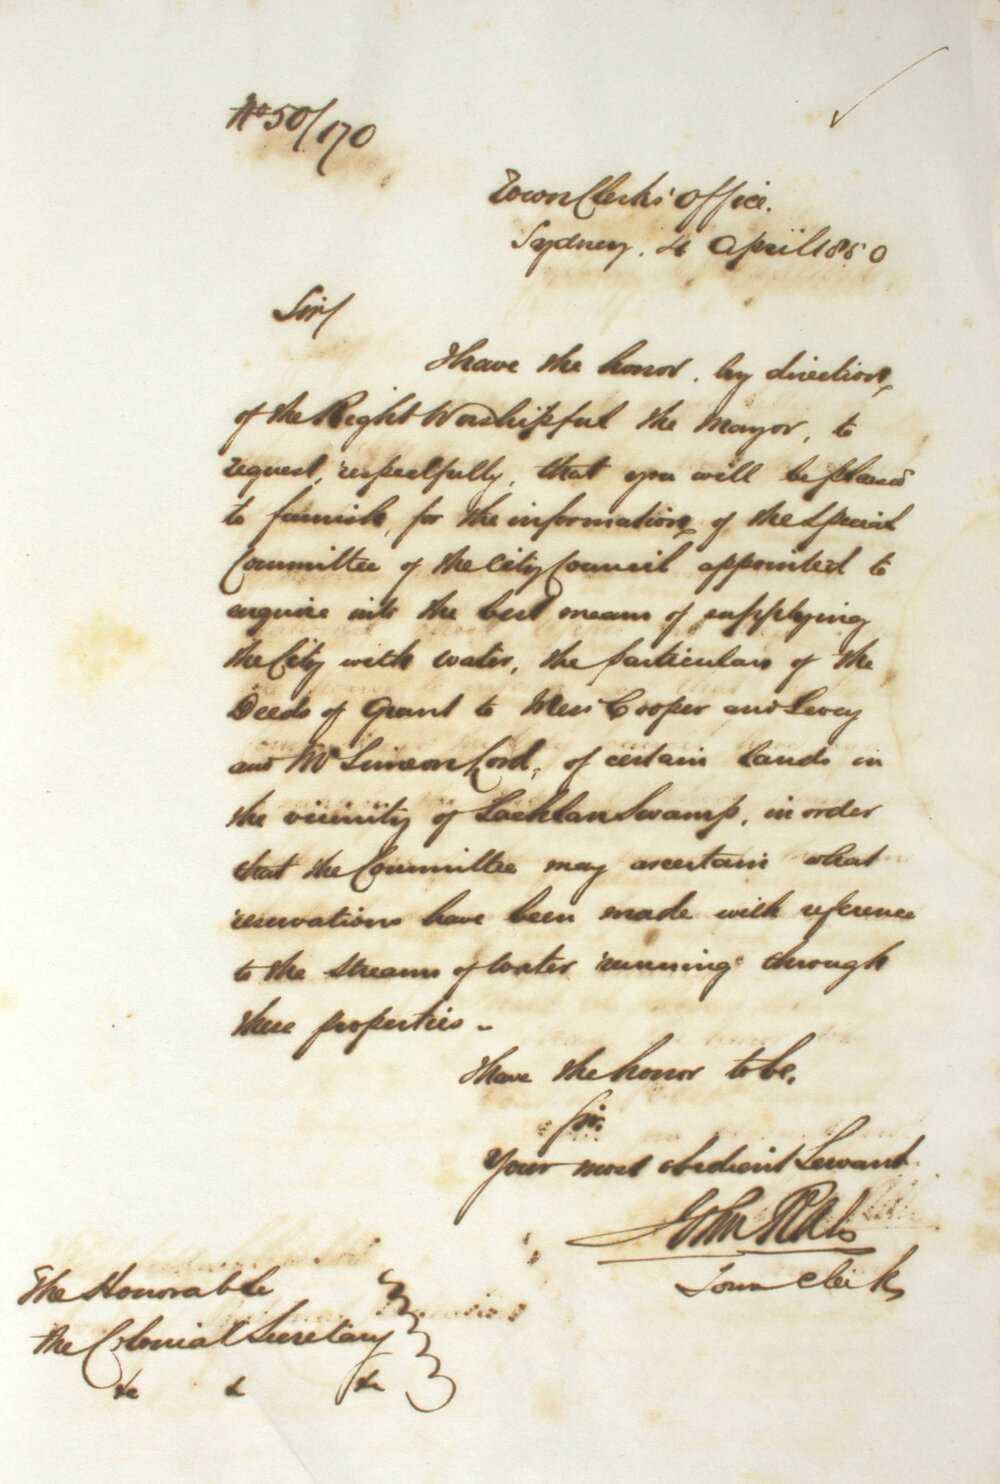 No 50/170
Town Clerks' Office.
Sydney. 4 April 1850
Sir/
I have the honor, by direction
of the Right Worshipful the Mayor, to
request, respectfully, that you will be pleased
to furnish, for the information of the Special
Committee of the City Council appointed to
enquire into the best means of supplying
the City with water, the particulars of the
Deeds of Grant to Mess Cooper and Levey
and Mr Simeon Lord, of certain lands in
the vicinity of Lachlan Swamp, in order
that the Committee may ascertain what
reservations have been made with reference
to the streams of water running through
these properties -
I have the honor to be,
Sir,
Your most obedient Servant
John Rae
Town Clerk
The Honorable
the Colonial Secretary
&c & &c